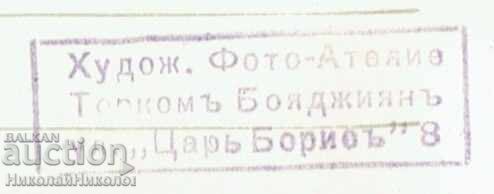 Худож. Фото-Ателие
Торкомъ Бояджиянъ
ул. „Царь Борисъ" 8
BALKAN
auction
НиколайНиколов